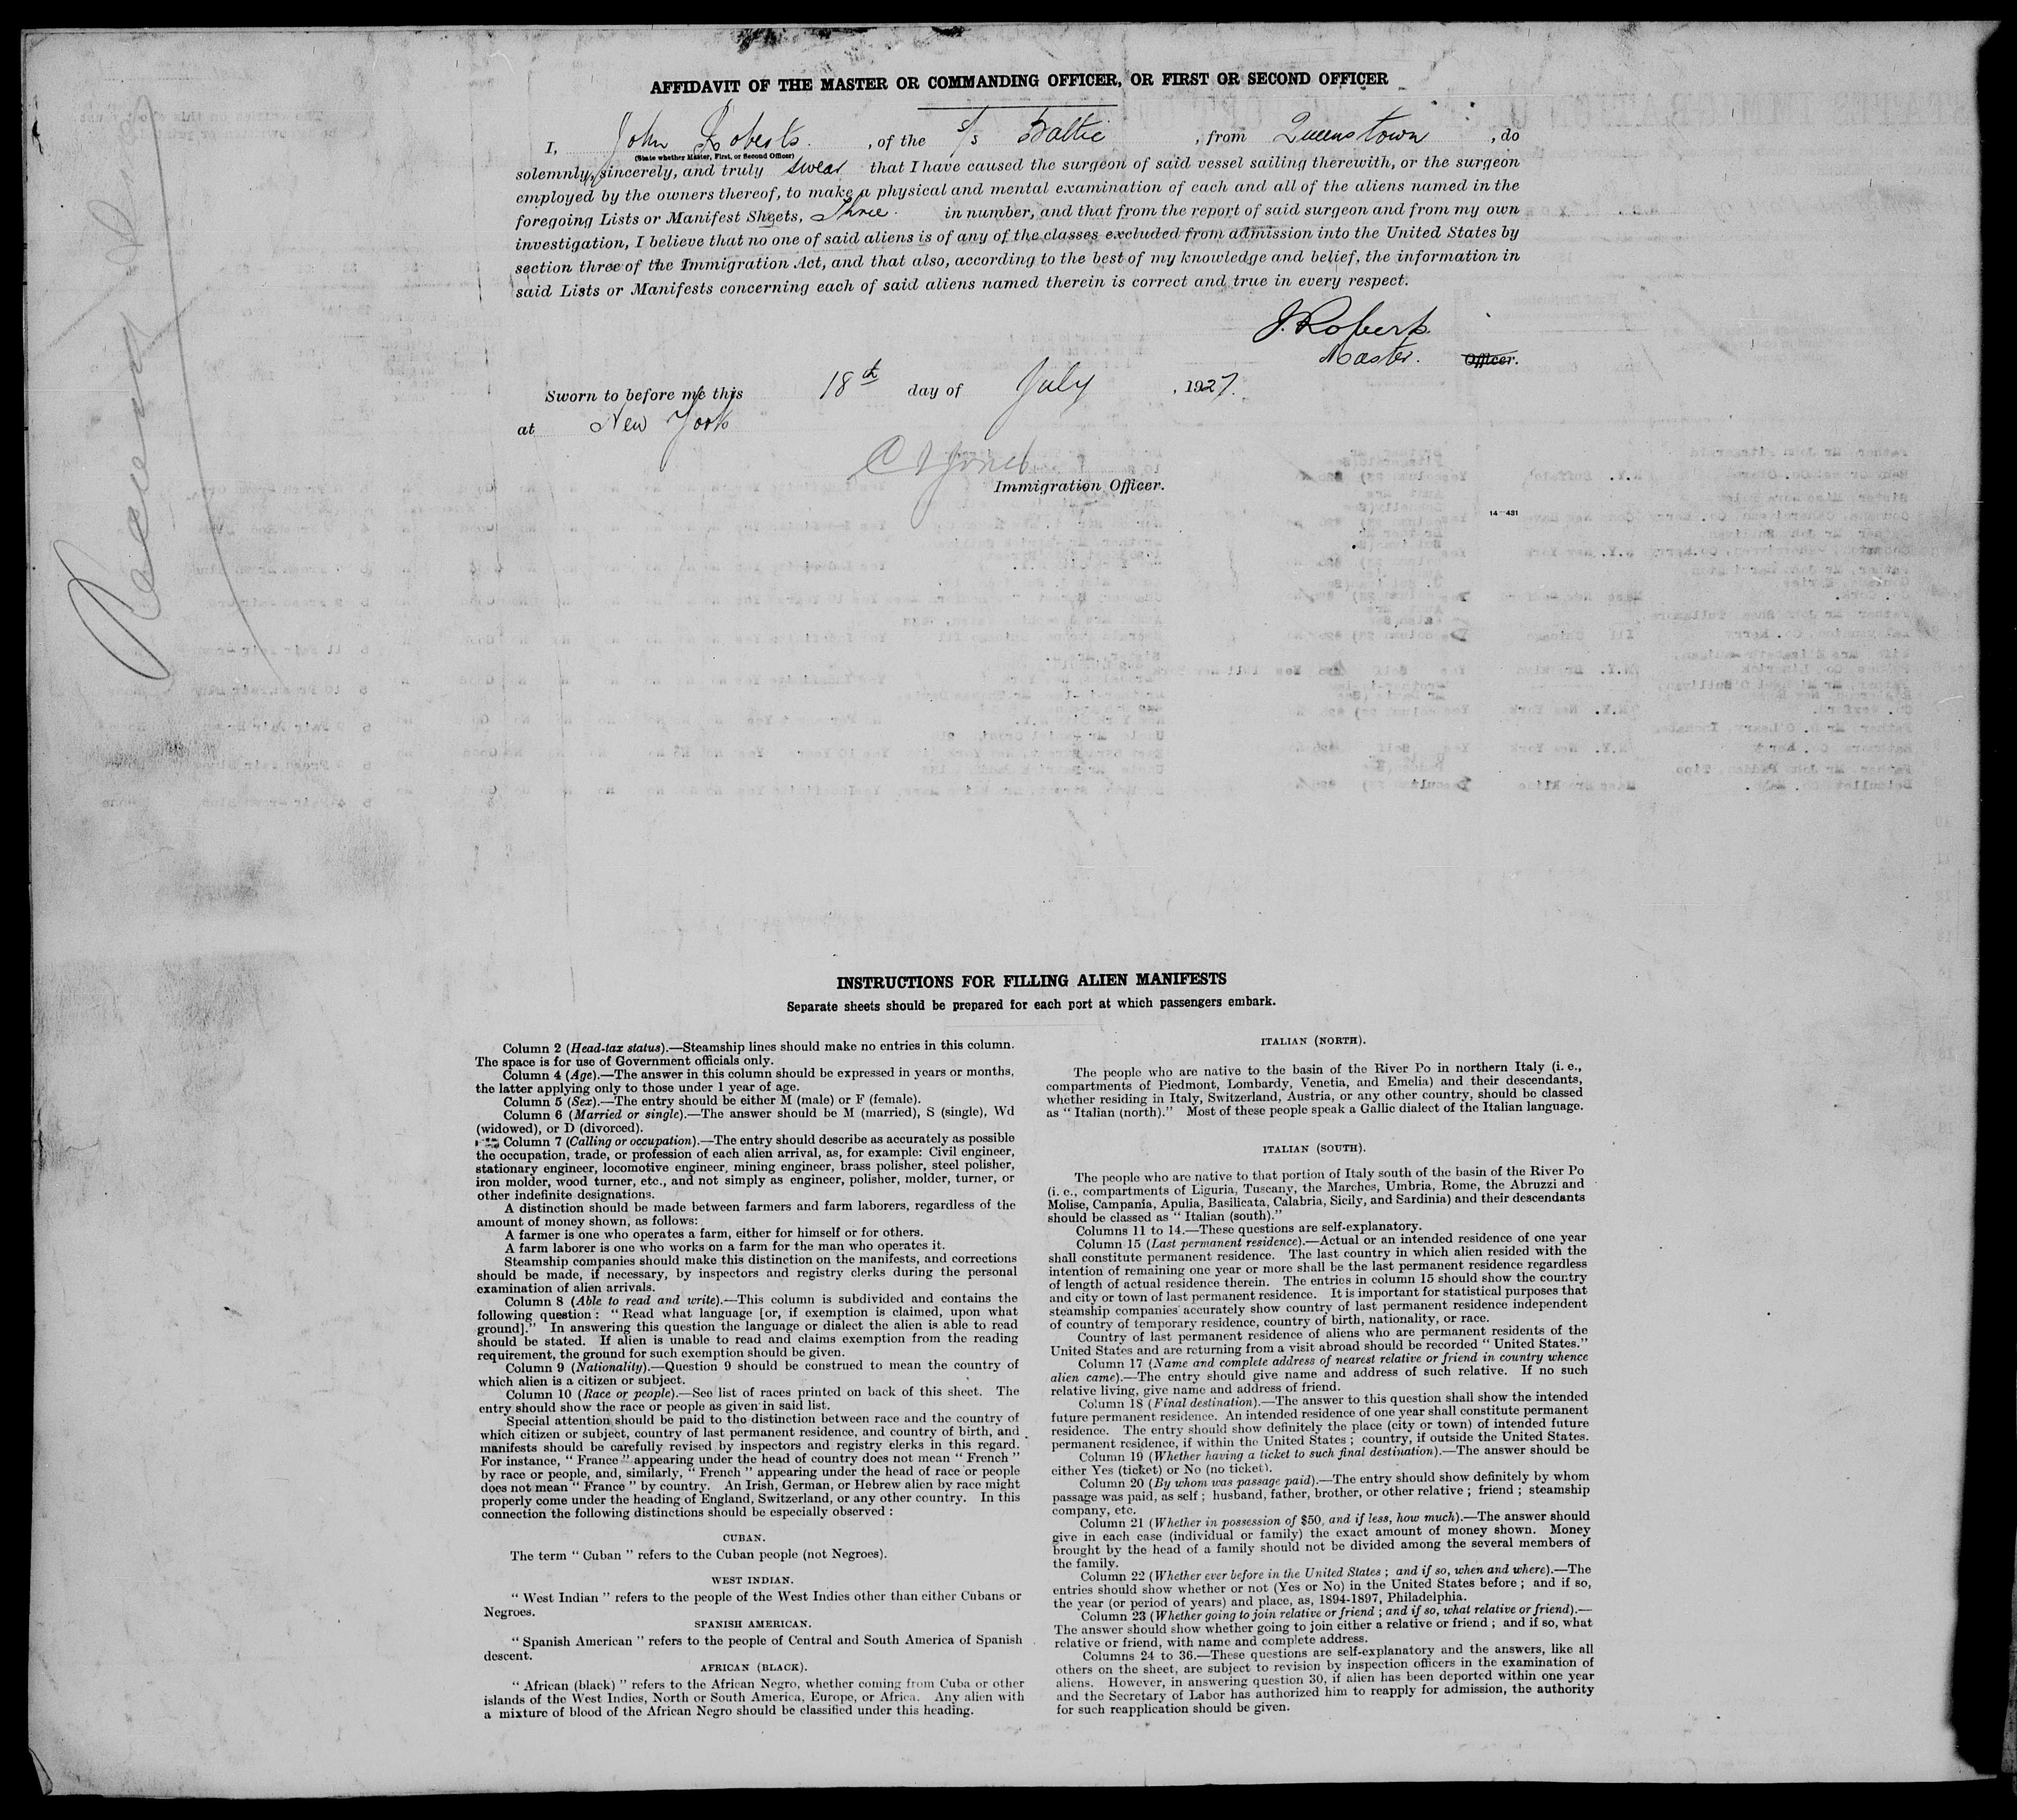 AFFIDAVIT OF THE MASTER OR COMMANDING OFFICER, OR FIRST OR SECOND OFFICER
I, John Roberts. , of the S/S Baltic , from Queenstown , do
(State whether Master, First, or Second Officer)
solemnly, sincerely, and truly swear that I have caused the surgeon of said vessel sailing therewith, or the surgeon
employed by the owners thereof, to make a physical and mental examination of each and all of the aliens named in the
foregoing Lists or Manifest Sheets, Three. in number, and that from the report of said surgeon and from my own
investigation, I believe that no one of said aliens is of any of the classes excluded from admission into the United States by
section three of the Immigration Act, and that also, according to the best of my knowledge and belief, the information in
said Lists or Manifests concerning each of said aliens named therein is correct and true in every respect.
J. Roberts
Master. Officer.
Sworn to before me this 18th day of July , 1927.
at New York
Immigration Officer.
14—431
INSTRUCTIONS FOR FILLING ALIEN MANIFESTS
Separate sheets should be prepared for each port at which passengers embark.
Column 2 (Head-tax status).—Steamship lines should make no entries in this column.
The space is for use of Government officials only.
Column 4 (Age).—The answer in this column should be expressed in years or months,
the latter applying only to those under 1 year of age.
Column 5 (Sex).—The entry should be either M (male) or F (female).
Column 6 (Married or single).—The answer should be M (married), S (single), Wd
(widowed), or D (divorced).
Column 7 (Calling or occupation).—The entry should describe as accurately as possible
the occupation, trade, or profession of each alien arrival, as, for example: Civil engineer,
stationary engineer, locomotive engineer, mining engineer, brass polisher, steel polisher,
iron molder, wood turner, etc., and not simply as engineer, polisher, molder, turner, or
other indefinite designations.
A distinction should be made between farmers and farm laborers, regardless of the
amount of money shown, as follows:
A farmer is one who operates a farm, either for himself or for others.
A farm laborer is one who works on a farm for the man who operates it.
Steamship companies should make this distinction on the manifests, and corrections
should be made, if necessary, by inspectors and registry clerks during the personal
examination of alien arrivals.
Column 8 (Able to read and write).—This column is subdivided and contains the
following question : " Read what language [or, if exemption is claimed, upon what
ground]." In answering this question the language or dialect the alien is able to read
should be stated. If alien is unable to read and claims exemption from the reading
requirement, the ground for such exemption should be given.
Column 9 (Nationality).—Question 9 should be construed to mean the country of
which alien is a citizen or subject.
Column 10 (Race or people).—See list of races printed on back of this sheet. The
entry should show the race or people as given in said list.
Special attention should be paid to the distinction between race and the country of
which citizen or subject, country of last permanent residence, and country of birth, and
manifests should be carefully revised by inspectors and registry clerks in this regard.
For instance, " France " appearing under the head of country does not mean " French "
by race or people, and, similarly, " French " appearing under the head of race or people
does not mean " France " by country. An Irish, German, or Hebrew alien by race might
properly come under the heading of England, Switzerland, or any other country. In this
connection the following distinctions should be especially observed :
CUBAN.
The term " Cuban " refers to the Cuban people (not Negroes).
WEST INDIAN.
" West Indian " refers to the people of the West Indies other than either Cubans or
Negroes.
SPANISH AMERICAN.
" Spanish American " refers to the people of Central and South America of Spanish
descent.
AFRICAN (BLACK).
" African (black) " refers to the African Negro, whether coming from Cuba or other
islands of the West Indies, North or South America, Europe, or Africa. Any alien with
a mixture of blood of the African Negro should be classified under this heading.
ITALIAN (NORTH).
The people who are native to the basin of the River Po in northern Italy (i. e.,
compartments of Piedmont, Lombardy, Venetia, and Emelia) and their descendants,
whether residing in Italy, Switzerland, Austria, or any other country, should be classed
as " Italian (north)." Most of these people speak a Gallic dialect of the Italian language.
ITALIAN (SOUTH).
The people who are native to that portion of Italy south of the basin of the River Po
(i. e., compartments of Liguria, Tuscany, the Marches, Umbria, Rome, the Abruzzi and
Molise, Campania, Apulia, Basilicata, Calabria, Sicily, and Sardinia) and their descendants
should be classed as " Italian (south)."
Columns 11 to 14.—These questions are self-explanatory.
Column 15 (Last permanent residence).—Actual or an intended residence of one year
shall constitute permanent residence. The last country in which alien resided with the
intention of remaining one year or more shall be the last permanent residence regardless
of length of actual residence therein. The entries in column 15 should show the country
and city or town of last permanent residence. It is important for statistical purposes that
steamship companies accurately show country of last permanent residence independent
of country of temporary residence, country of birth, nationality, or race.
Country of last permanent residence of aliens who are permanent residents of the
United States and are returning from a visit abroad should be recorded " United States."
Column 17 (Name and complete address of nearest relative or friend in country whence
alien came).—The entry should give name and address of such relative. If no such
relative living, give name and address of friend.
Column 18 (Final destination).—The answer to this question shall show the intended
future permanent residence. An intended residence of one year shall constitute permanent
residence. The entry should show definitely the place (city or town) of intended future
permanent residence, if within the United States ; country, if outside the United States.
Column 19 (Whether having a ticket to such final destination).—The answer should be
either Yes (ticket) or No (no ticket).
Column 20 (By whom was passage paid).—The entry should show definitely by whom
passage was paid, as self ; husband, father, brother, or other relative ; friend ; steamship
company, etc.
Column 21 (Whether in possession of $50, and if less, how much).—The answer should
give in each case (individual or family) the exact amount of money shown. Money
brought by the head of a family should not be divided among the several members of
the family.
Column 22 (Whether ever before in the United States ; and if so, when and where).—The
entries should show whether or not (Yes or No) in the United States before ; and if so,
the year (or period of years) and place, as, 1894-1897, Philadelphia.
Column 23 (Whether going to join relative or friend ; and if so, what relative or friend).—
The answer should show whether going to join either a relative or friend ; and if so, what
relative or friend, with name and complete address.
Columns 24 to 36.—These questions are self-explanatory and the answers, like all
others on the sheet, are subject to revision by inspection officers in the examination of
aliens. However, in answering question 30, if alien has been deported within one year
and the Secretary of Labor has authorized him to reapply for admission, the authority
for such reapplication should be given.